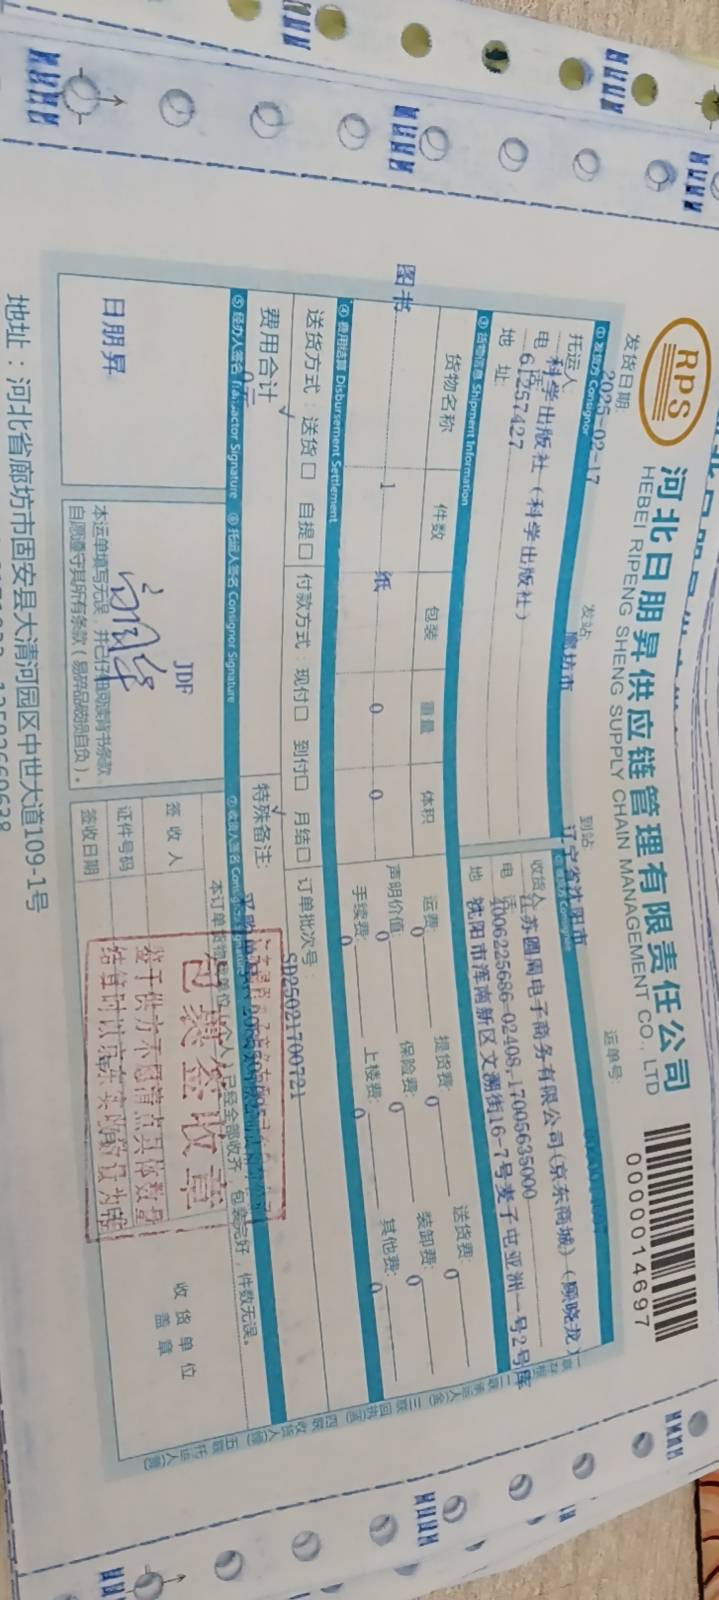 RPS
河北日朋昇供应链管理有限责任公司
HEBEI RIPENG SHENG SUPPLY CHAIN MANAGEMENT CO., LTD
0000014697
发货日期:
2025-02-17
发站:
廊坊市
到站:
辽宁省沈阳市
运单号:
① 发货方 Consignor
托运人
科学出版社（科学出版社）
电 话
61257427
地 址
收货人
江苏圆周电子商务有限公司(京东商城)（顾晓龙）
电 话
4006225686-02408-17005635000
地
沈阳市浑南新区文溯街16-7号麦子屯亚洲一号2号库
③ 货物信息 Shipment Information
货物名称 件数 包装 重量 体积
图书 1 纸 0 0
运费: 0 提货费: 0 送货费: 0
声明价值: 0 保险费: 0 装卸费: 0
手续费: 0 上楼费: 0 其他费: 0
④ 费用结算 Disbursement Settlement
送货方式：送货□ 自提□ 付款方式：现付□ 到付□ 月结□ 订单批次号:
SD25021700721
费用合计
特殊备注:
⑤ 经办人签名 Transactor Signature ⑥ 托运人签名 Consignor Signature
日朋昇
JDF
本运单填写无误，并已仔细阅读背书条款，
自愿遵守其所有条款（易碎品破损自负）。
已经全部收齐，包装完好，件数无误。
签 收 人
证件号码
签收日期
收货单位
盖章
包裹签收章
鉴于供方不愿清点具体数量
地址：河北省廊坊市固安县大清河园区中世大道109-1号